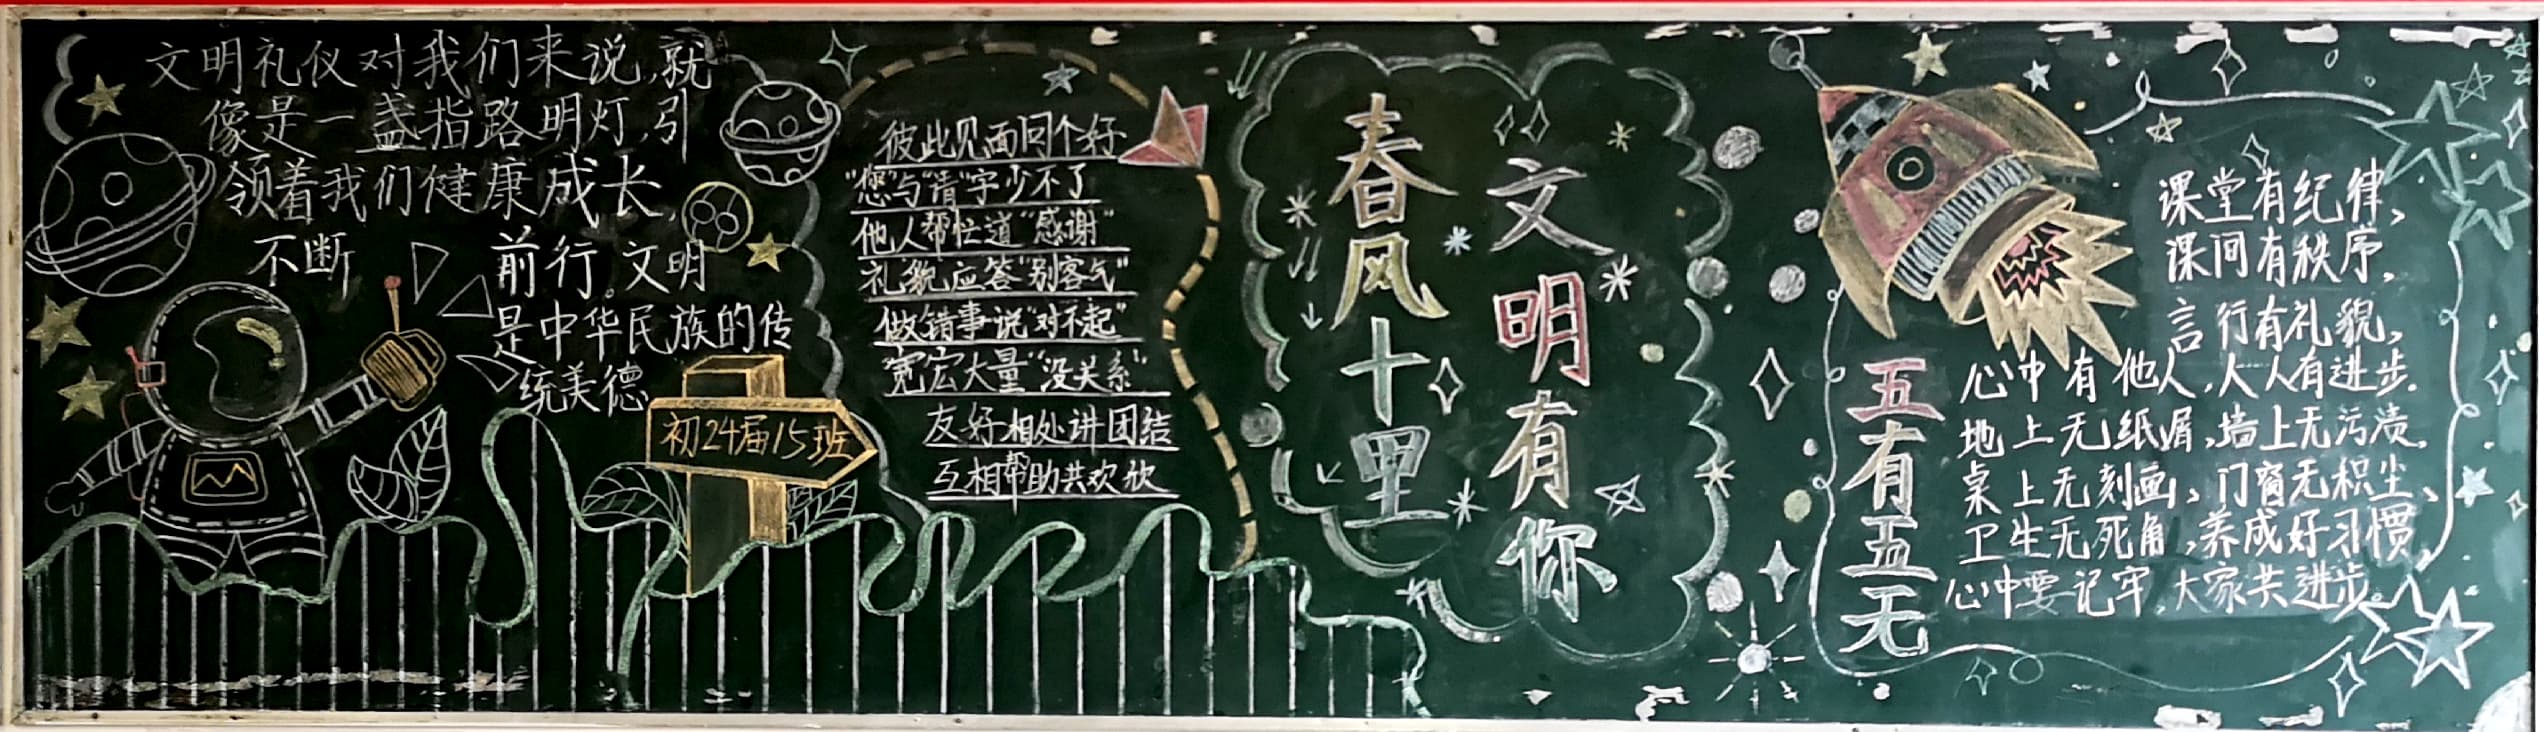 文明礼仪对我们来说,就
像是一盏指路明灯,引
领着我们健康成长,
不断 前行。文明
是中华民族的传
统美德
初24届15班
彼此见面问个好
"您"与"请"字少不了
他人帮忙道"感谢"
礼貌应答"别客气"
做错事说"对不起"
宽宏大量"没关系"
友好相处讲团结
互相帮助共欢欣
春风十里
文明有你
五有五无
课堂有纪律、
课间有秩序,
言行有礼貌,
心中有他人,人人有进步.
地上无纸屑,墙上无污渍.
桌上无刻画、门窗无积尘、
卫生无死角,养成好习惯,
心中要记牢,大家共进步。